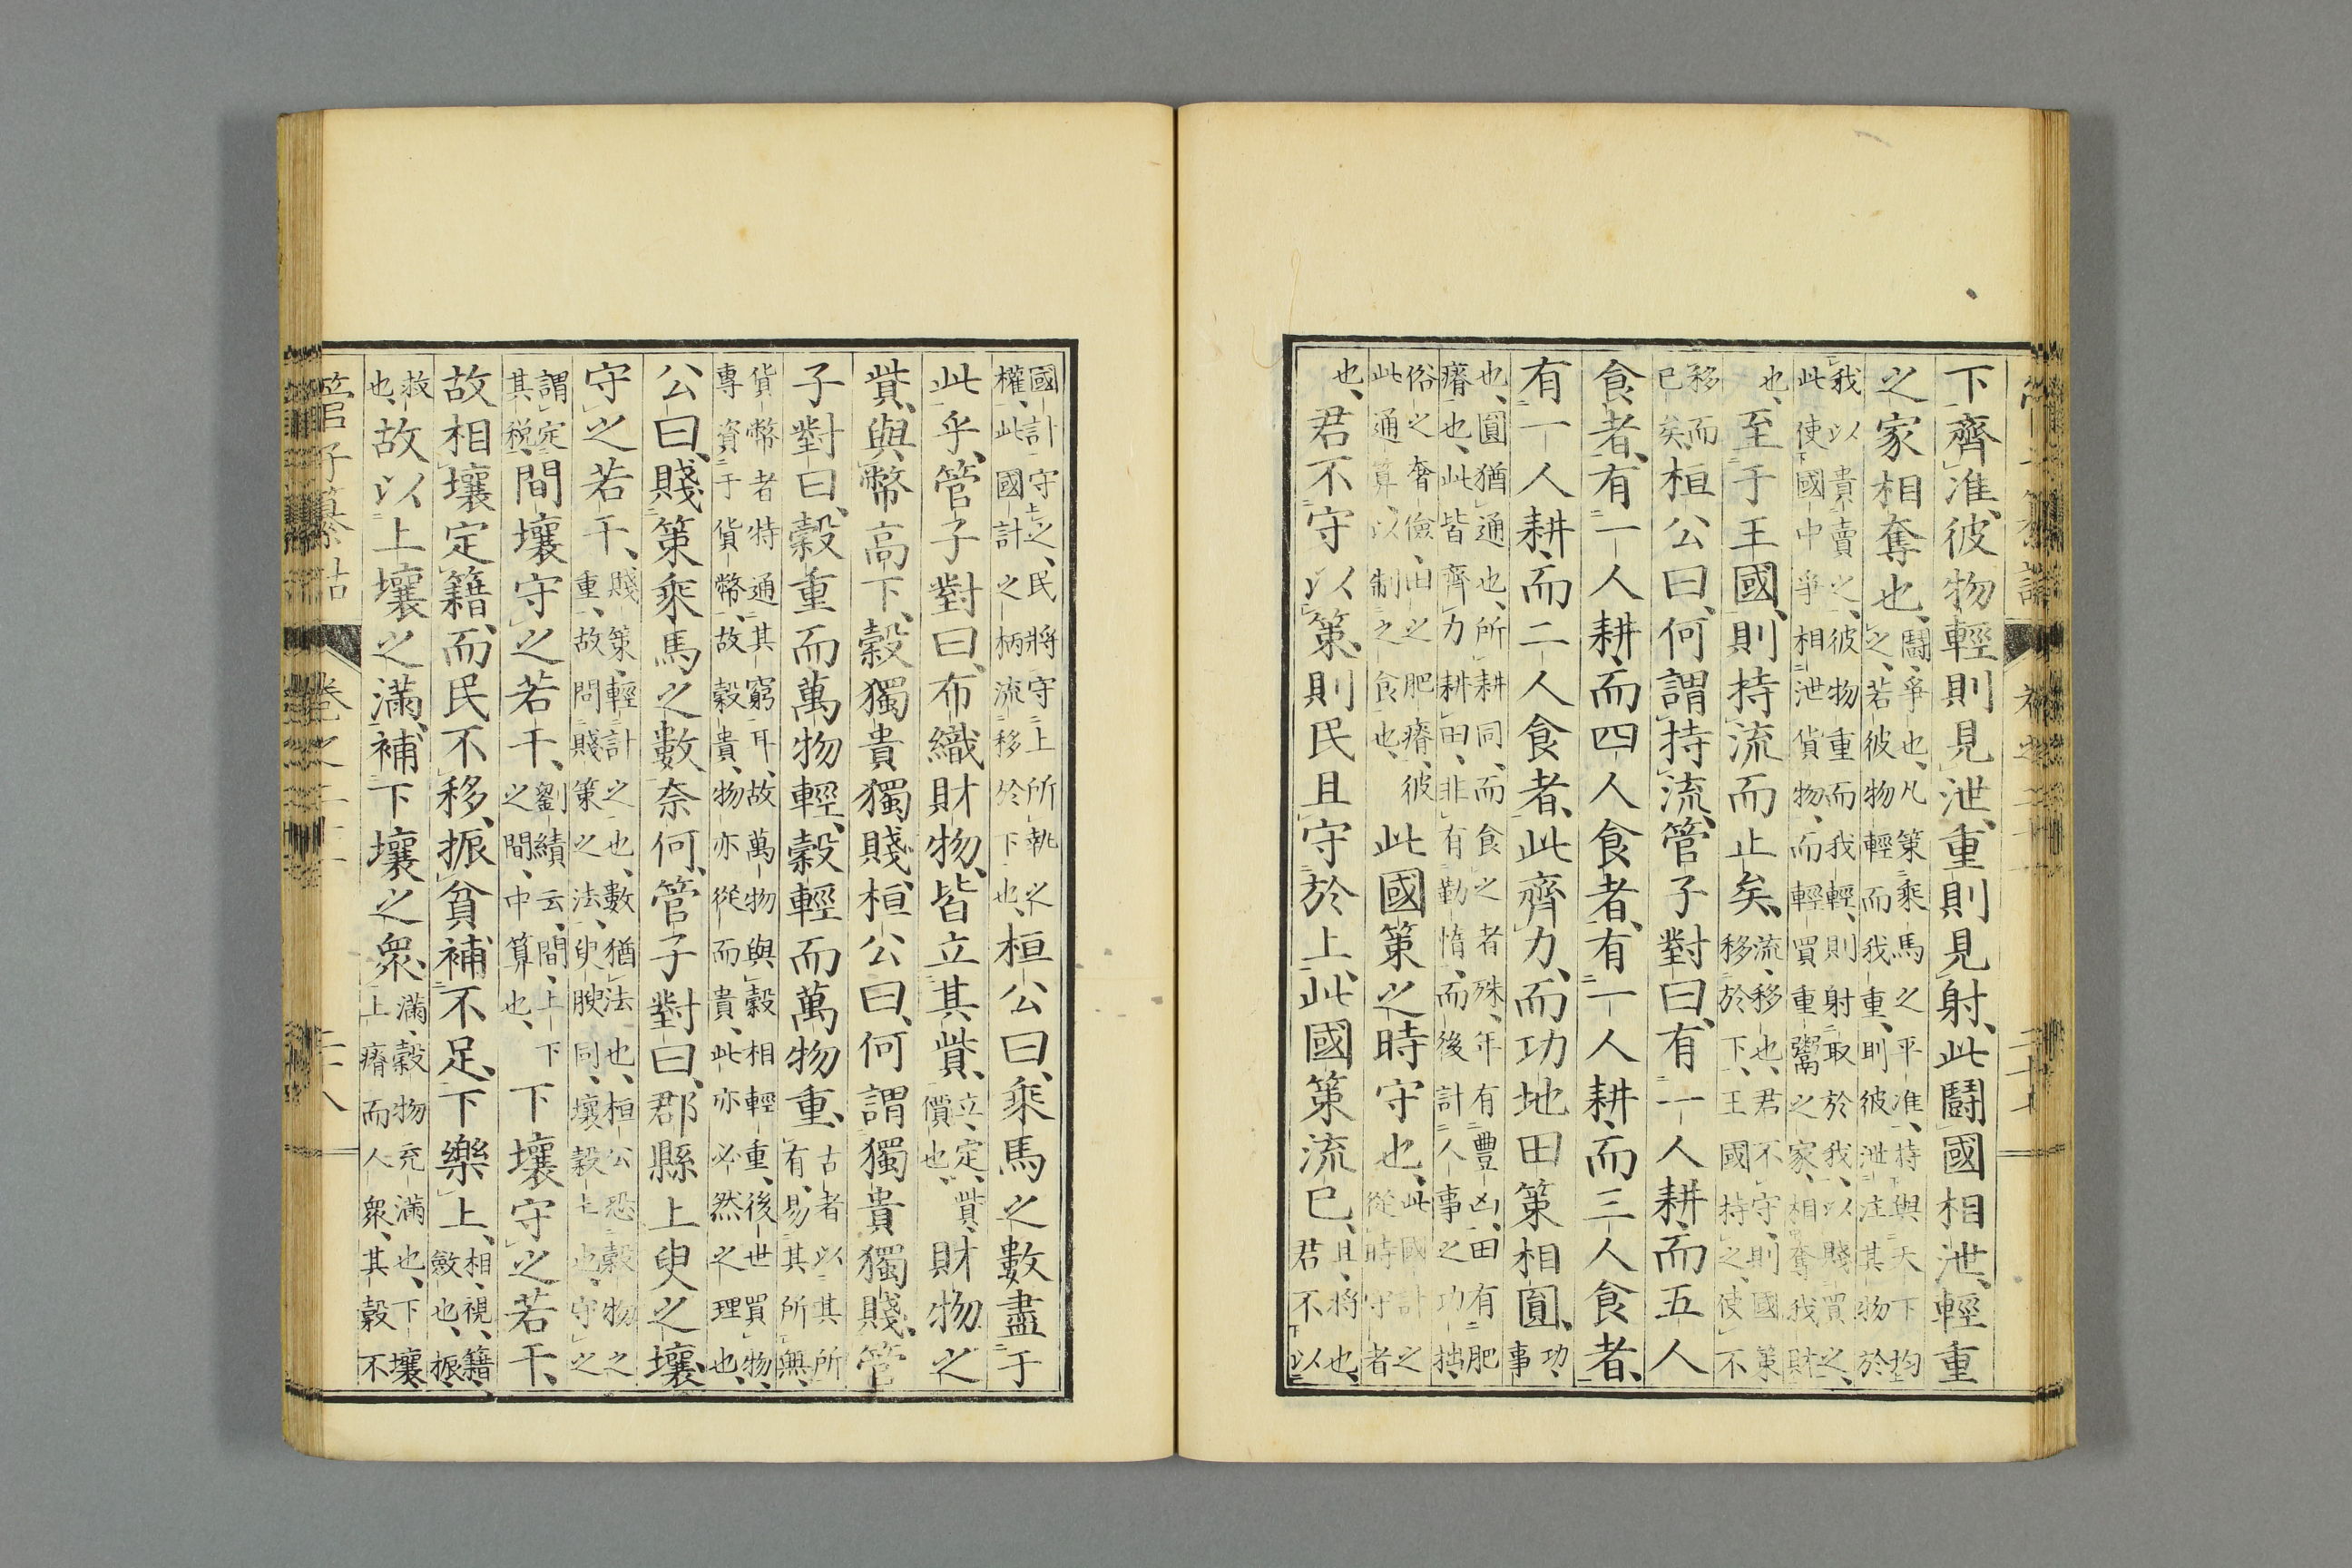 下齊准彼物輕則見泄重則見射此鬪國相泄輕重
之家相奪也鬪爭也凡策乘馬之平准持與天下均之若彼物輕而我重則彼泄注其物於
我以貴賣之彼物重而我輕則射取於我以賤買之此使國中爭相泄貨物而輕買重鬻之家相奪我財
也至于王國則持流而止矣流移也君不守則國策移於下王國持之使不
移而已矣桓公曰何謂持流管子對曰有一人耕而五人
食者有一人耕而四人食者有一人耕而三人食者
有一人耕而二人食者此齊力而功地田策相圓功事
也圓猶通也所耕同而食之者殊年有豐凶田有肥瘠也此皆齊力耕田非有勤惰而後計人事之功拙
俗之奢儉田之肥瘠彼此通算以制之食也此國策之時守也此國計之從時守者
也君不守以策則民且守於上此國策流已且將也君不以
國計守之民將守上所執之權此國計之柄流移於下也桓公曰乘馬之數盡于
此乎管子對曰布織財物皆立其貲立定也貲財物之價也
貲與幣高下穀獨貴獨賤桓公曰何謂獨貴獨賤管
子對曰穀重而萬物輕穀輕而萬物重古者以其所有易其所無
貨幣者特通其窮耳故萬物與穀相輕重後世買物專資于貨幣故穀貴物亦從而貴此亦必然之理也
公曰賤策乘馬之數奈何管子對曰郡縣上臾之壤
守之若干賤策輕計之也數猶法也桓公恐穀物之重故問賤策之法臾腴同壤穀土也守之
謂定其稅間壤守之若干劉績云間上下之間中算也下壤守之若干
故相壤定籍而民不移振貧補不足下樂上相視籍斂也振
救也故以上壤之滿補下壤之衆滿穀物充滿也下壤上瘠而人衆其穀不
管子纂詁 卷之二十二 二十八